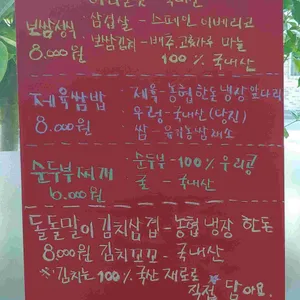 보쌈정식 삼겹살 - 스페인 이베리코
8.000원 보쌈김치 - 배추.고춧가루 마늘
100% 국내산
제육쌈밥 제육 - 농협 한돈 냉장 앞다리
8.000원 우렁 - 국내산 (당진)
쌈 - 유기농쌈채소
순두부찌개 순두부 - 100% 우리콩
6.000원 굴 - 국내산
돌돌말이 김치삼겹 - 농협 냉장 한돈
8000원 김치꼬꼬 - 국내산
※김치는 100% 국산 재료로
직접 담아요.